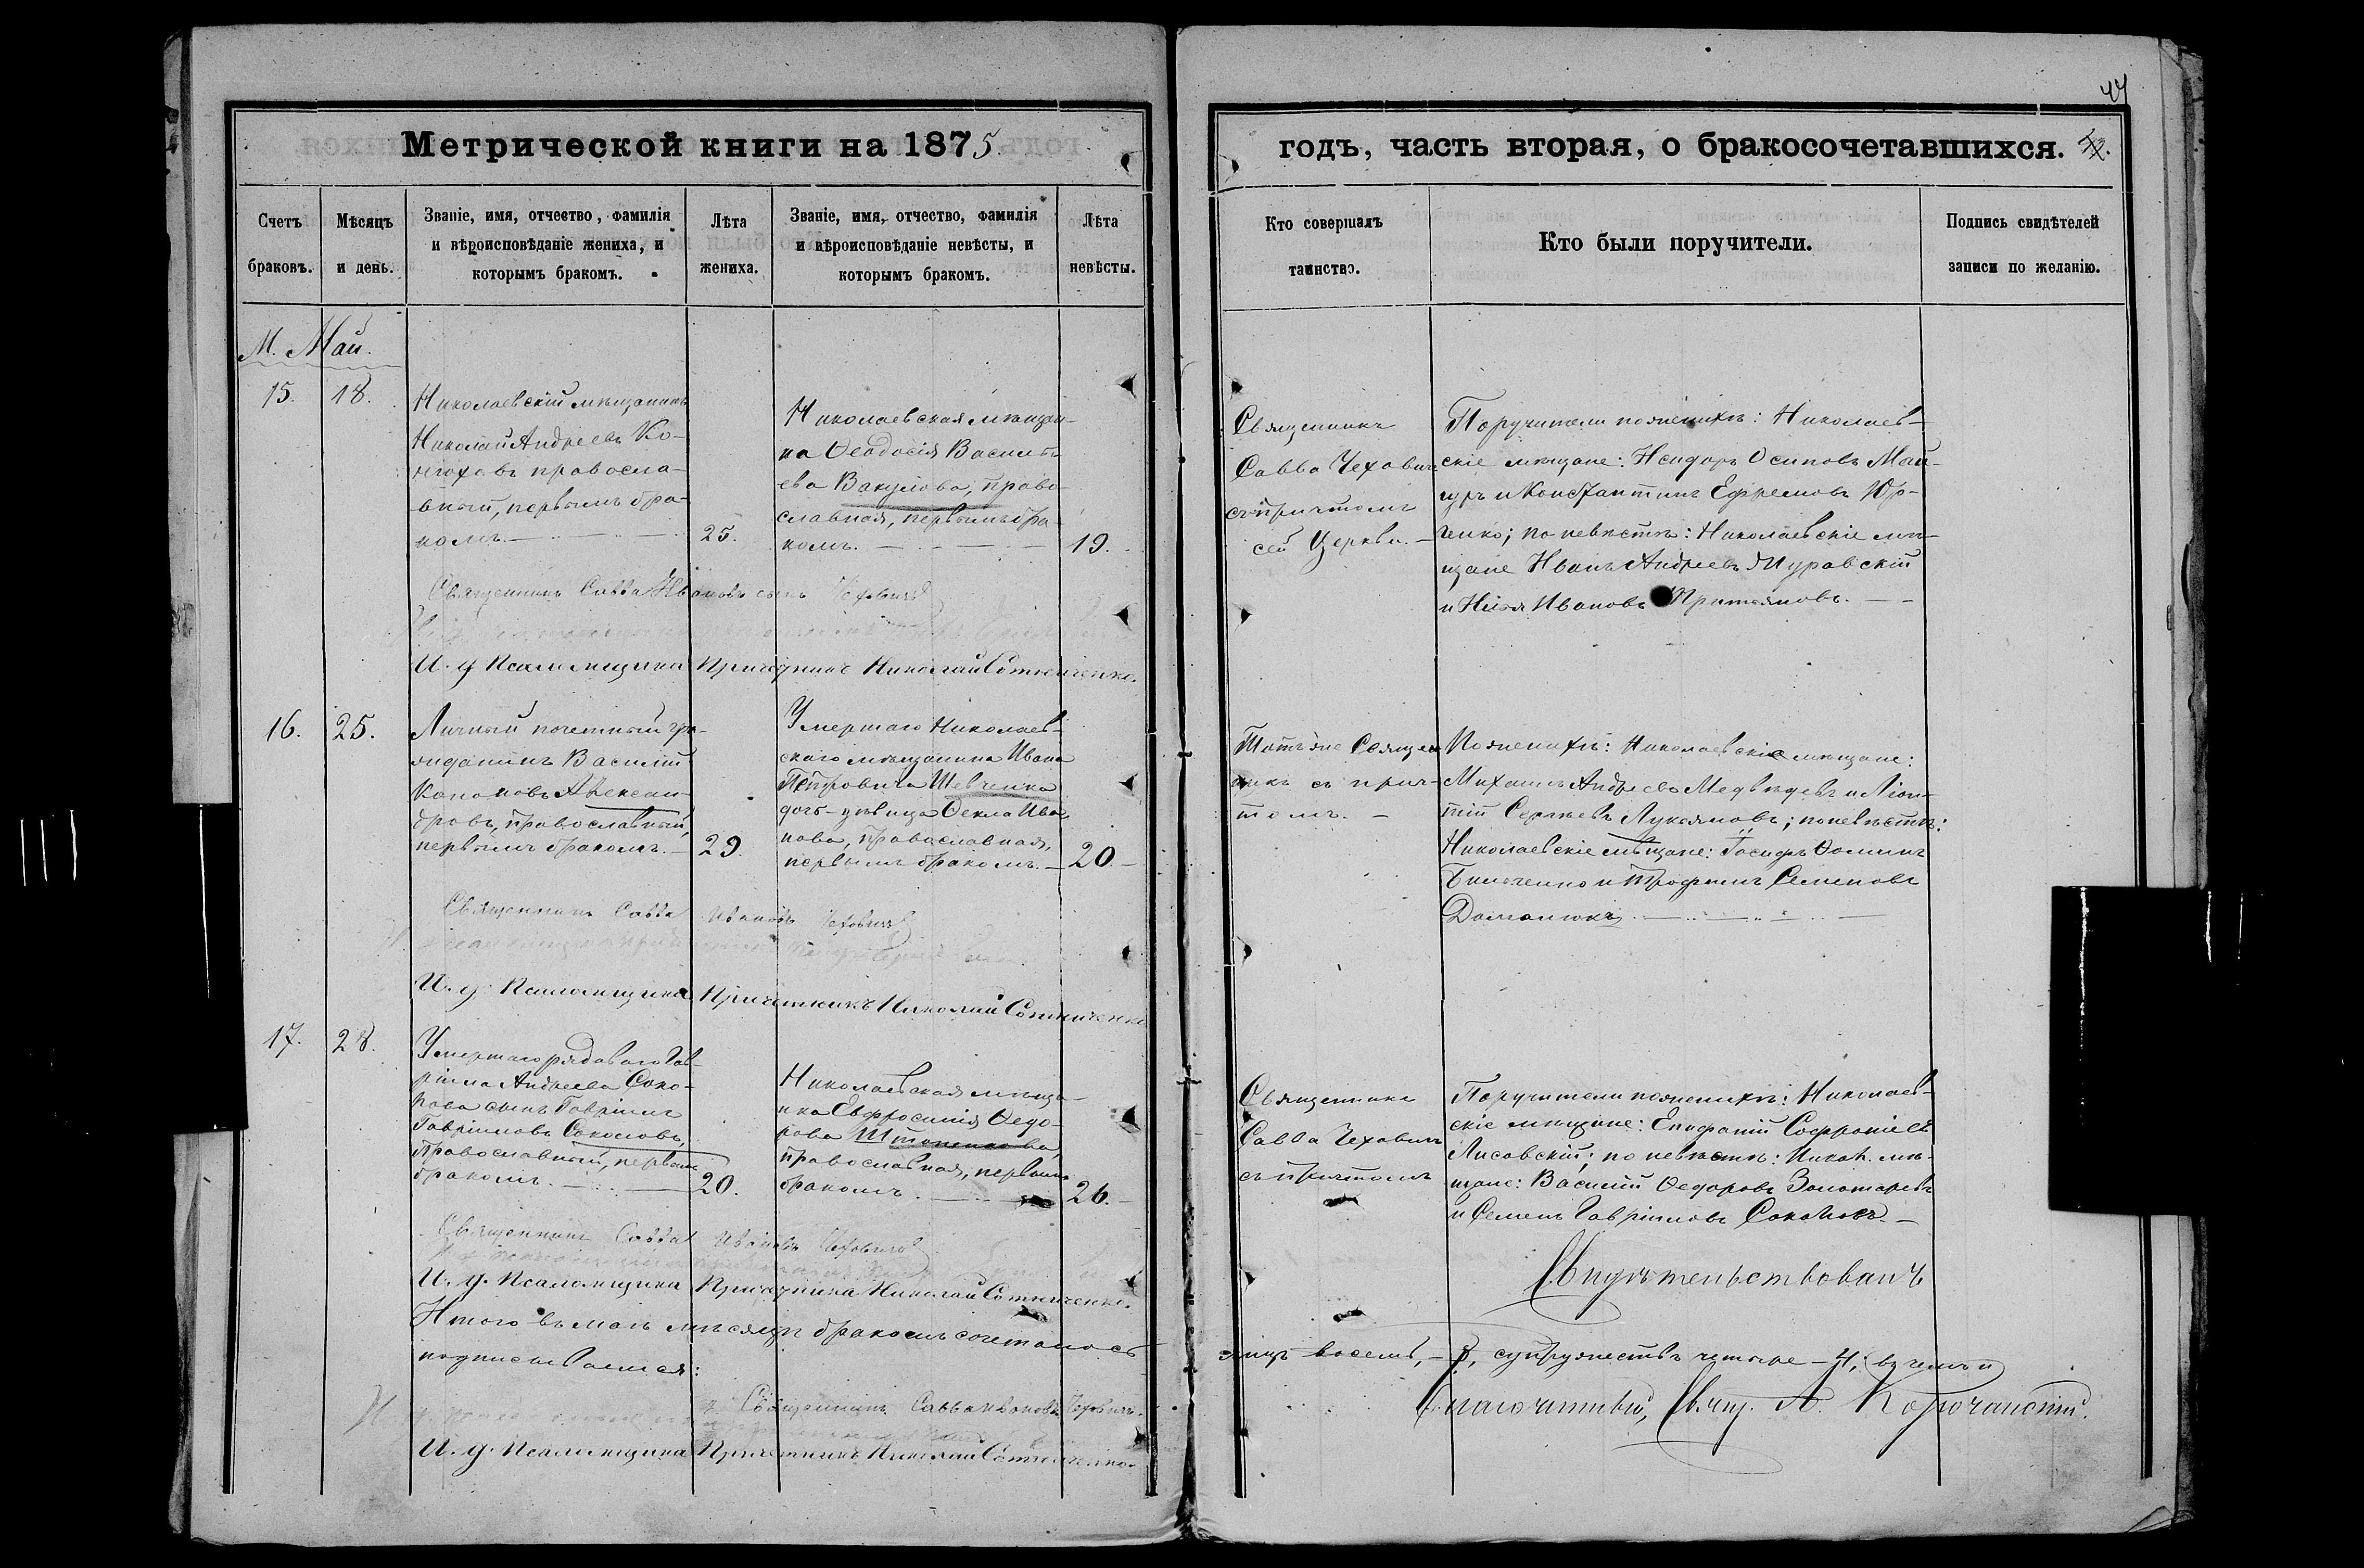 44
Метрической книги на 1875
годъ, часть вторая, о бракосочетавшихся.
Счетъ браковъ.
Мѣсяцъ и день.
Званіе, имя, отчество, фамилія
и вѣроисповѣданіе жениха, и
которымъ бракомъ.
Лѣта
жениха.
Званіе, имя, отчество, фамилія
и вѣроисповѣданіе невѣсты, и
которымъ бракомъ.
Лѣта
невѣсты.
Кто совершалъ
таинство.
Кто были поручители.
Подпись свидѣтелей
записи по желанію.
М. Май.
15.
18.
Николаевскій мѣщанинъ
Николай Андреевъ Ко-
нюховъ правосла-
вный, первымъ бра-
комъ.
25.
Николаевская мѣщан-
ка Ѳеодосія Василь-
ева Вакулова, право-
славная, первымъ бра-
комъ.
19.
Священникъ
Савва Чеховичъ
съ причтомъ
сей Церкви.
Поручители по женихѣ: Николаев-
скіе мѣщане: Исидоръ Осиповъ
и Константинъ Ефремовъ Юр-
ченко; по невѣстѣ: Николаевскіе мѣ-
щане Иванъ Андреевъ Муравскій
и Илья Ивановъ
Священникъ Савва Ивановъ сынъ Чеховичъ
И. д. Псаломщика Причетникъ Николай Сотниченко.
16.
25.
Личный почетный гра-
жданинъ Василій
Кононовъ Алексан-
дровъ, православный,
первымъ бракомъ.
29.
Умершаго Николаев-
скаго мѣщанина Ивана
Петровича Шевченка
дочь-дѣвица Ѳекла Ива-
нова, православная,
первымъ бракомъ.
20.
Тотъ же Священ-
никъ съ прич-
томъ.
По женихѣ: Николаевскіе мѣщане:
Михаилъ Андреевъ Медвѣдевъ и Леон-
тій Сергѣевъ Лукьяновъ; по невѣстѣ:
Николаевскіе мѣщане: Ѳоминъ
и Трофимъ Семеновъ
Доманюкъ.
Священникъ Савва Ивановъ Чеховичъ
И. д. Псаломщика Причетникъ Николай Сотниченко
17.
28.
Умершаго рядоваго Гав-
ріила Андреева Соко-
лова сынъ Гавріилъ
Гавріиловъ Соколовъ,
православный, первымъ
бракомъ.
20.
Николаевская мѣща-
нка Евфросинія Ѳедо-
рова
православная, первымъ
бракомъ.
26.
Священникъ
Савва Чеховичъ
съ причтомъ
Поручители по женихѣ: Николаев-
скіе мѣщане: Епифаній Софроніевъ
Лисовскій; по невѣстѣ: Никол. мѣ-
щане: Василій Ѳедоровъ Золотаревъ
и Семенъ Гавріиловъ Соколовъ.
Священникъ Савва Ивановъ Чеховичъ
И. д. Псаломщика Причетника Николай Сотниченко.
Свидѣтельствовалъ
Итого въ маѣ мѣсяцѣ бракомъ сочеталось
лицъ восемь, – 8, супружествъ четыре – 4, въ чемъ и
подписываемся:
Священникъ Савва Ивановъ Чеховичъ.
Благочинный, Свящ. А.
И. д. Псаломщика Причетникъ Николай Сотниченко.